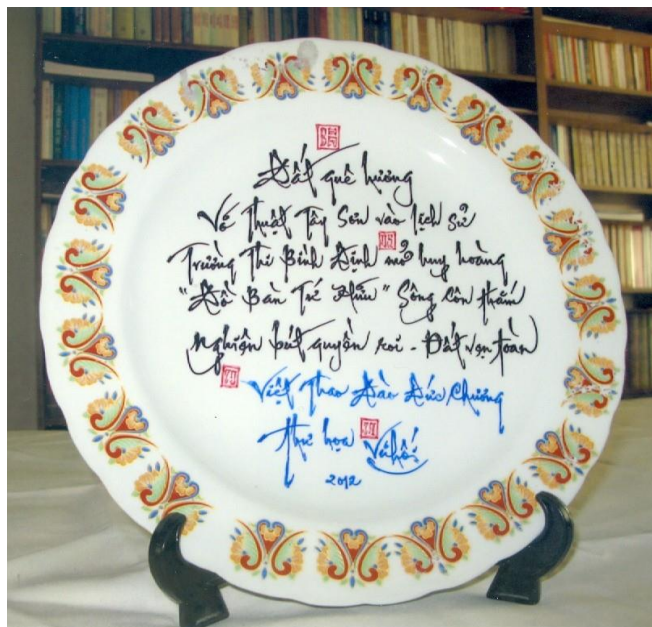 Đất quê hương
Võ thuật Tây Sơn vào lịch sử
Trường Thi Bình Định mở huy hoàng
"Đồ Bàn Tứ Hữu" Sông Côn thắm
Nghiên bút quyền roi - Đất vẹn toàn
Việt Thao Đào Đức Chương
thư họa Vũ Hối
2012